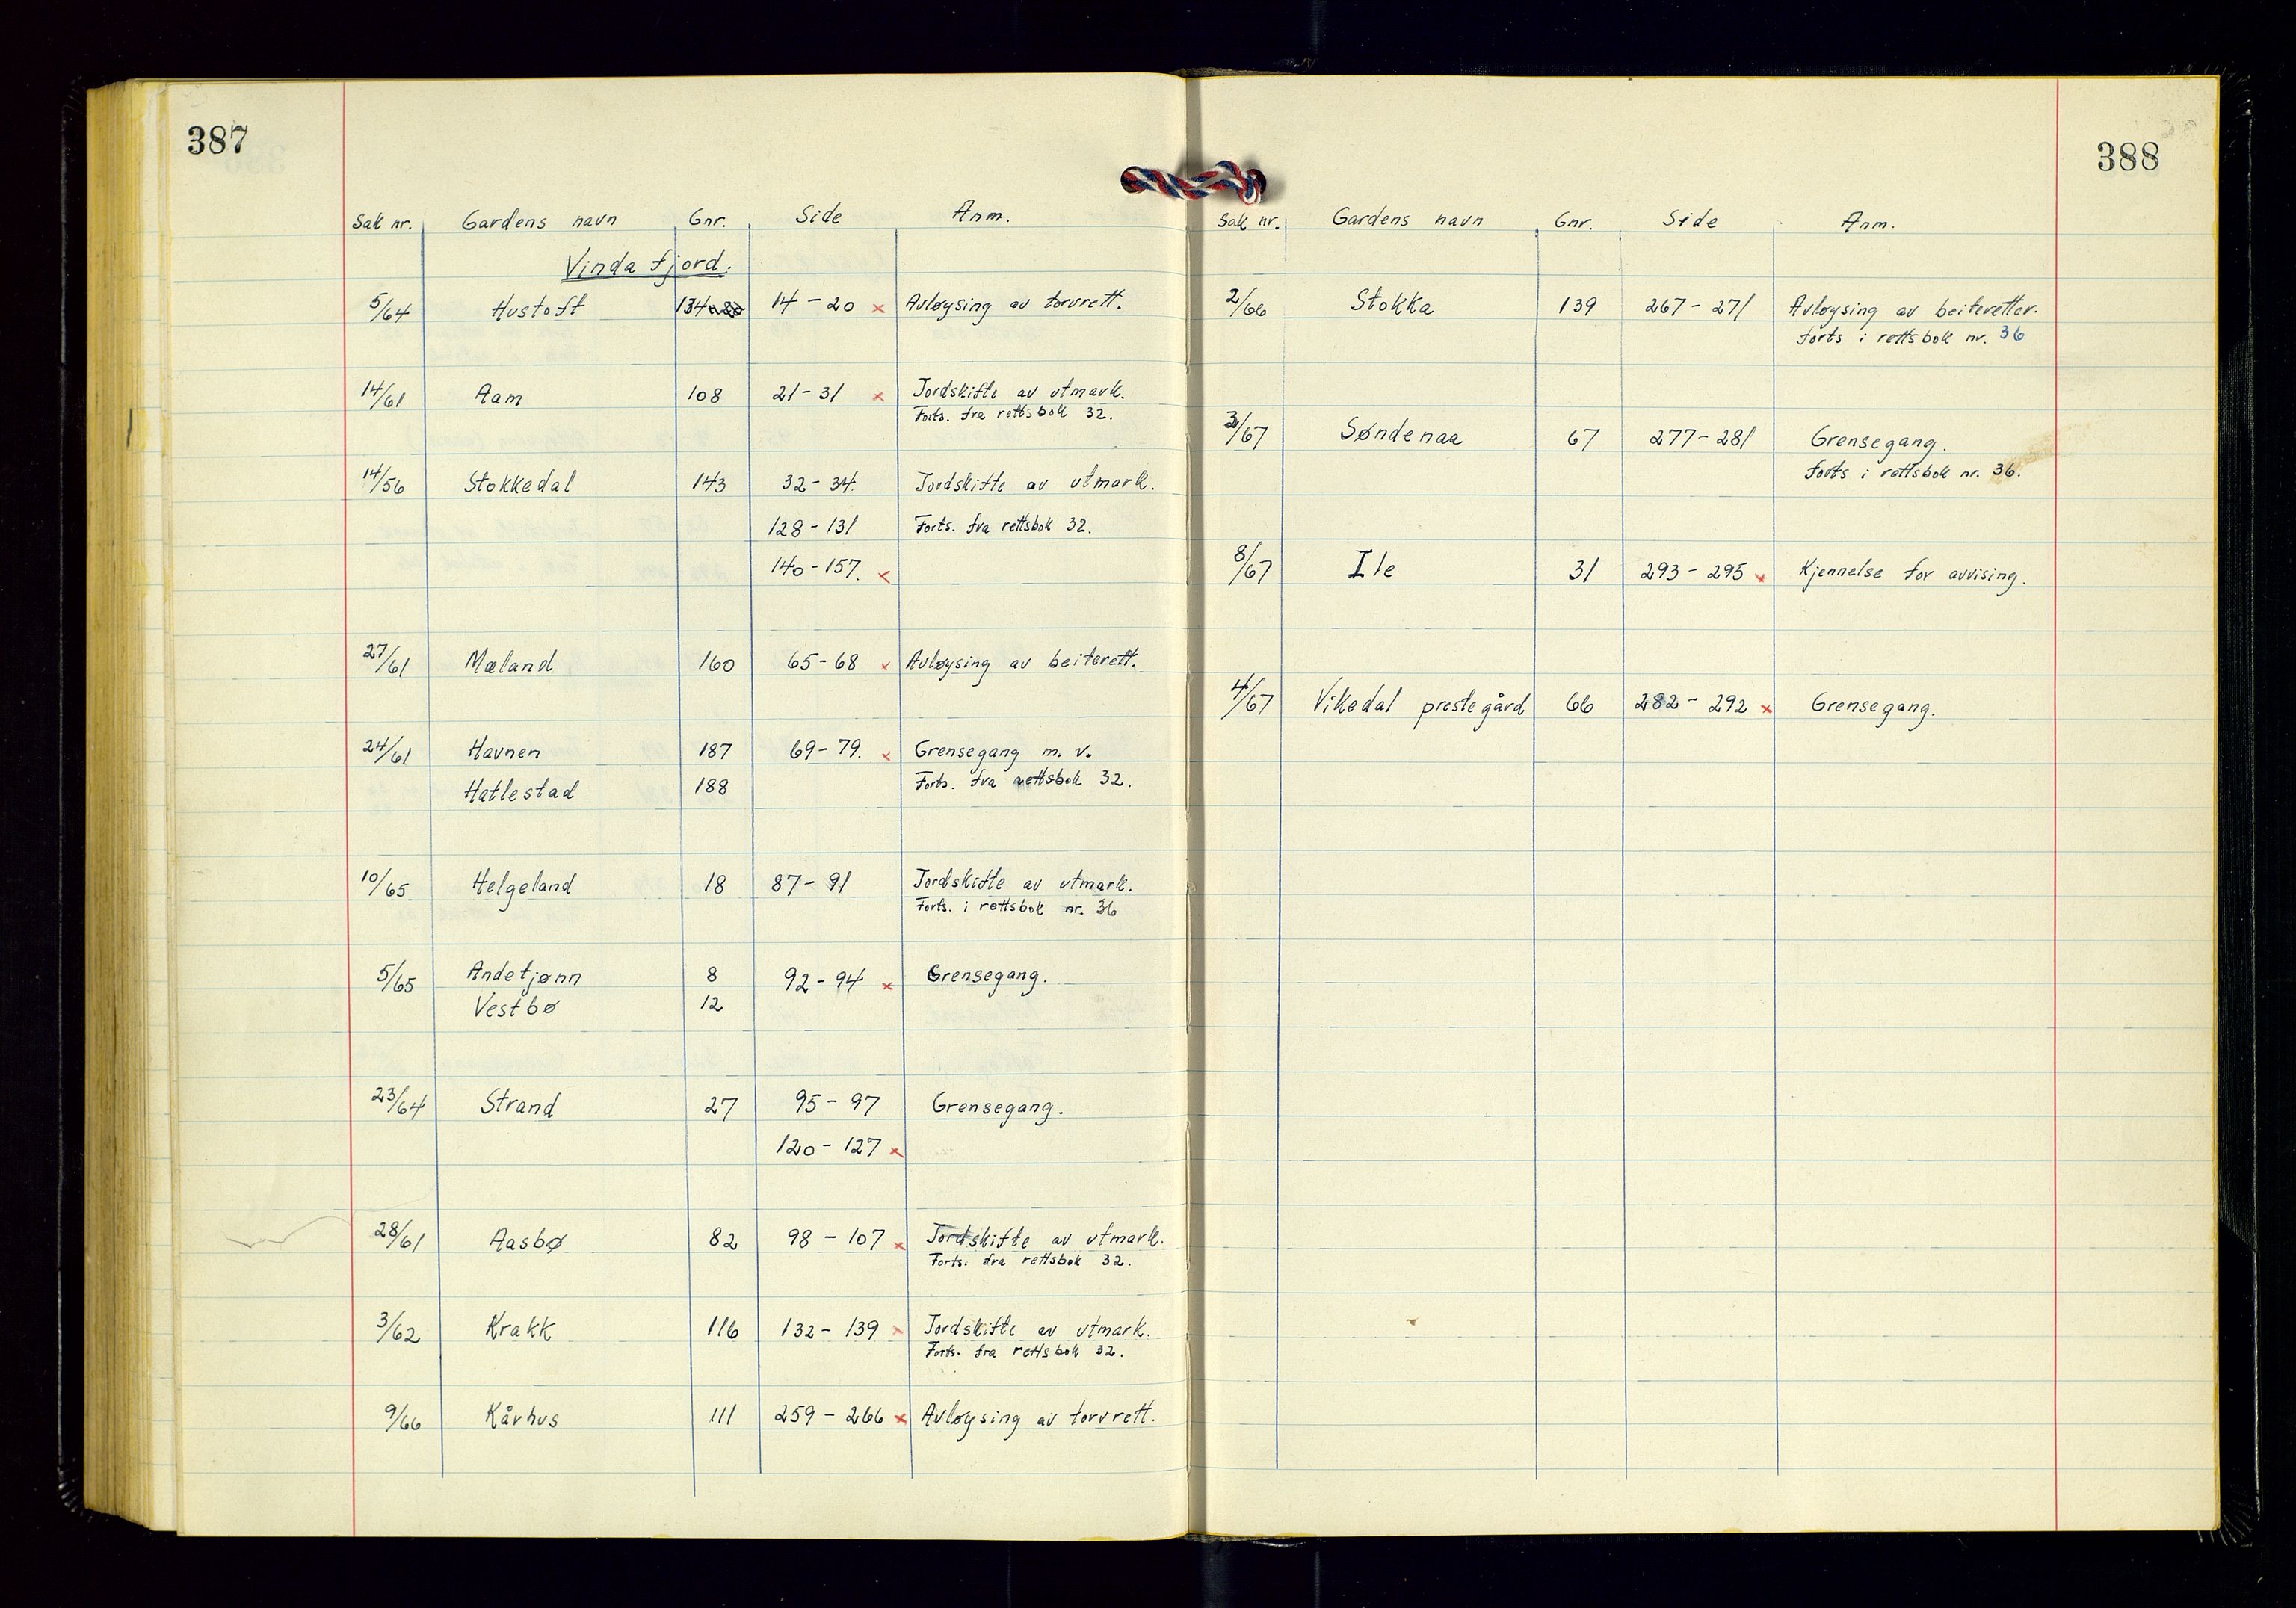 387
Sak nr. Gardens navn Gnr. Side Anm.
Vindafjord.
5/64 Hustoft 134 14 - 20 x Avløysing av torvrett.
14/61 Aam 108 21 - 31 x Jordskifte av utmark.
Forts. fra rettsbok 32.
14/56 Stokkedal 143 32 - 34. Jordskifte av utmark.
128 - 131 Forts. fra rettsbok 32.
140 - 157. x
27/61 Mæland 160 65 - 68 x Avløysing av beiterett.
24/61 Havnen 187 69 - 79. x Grensegang m. v.
Hatlestad 188 Forts. fra rettsbok 32.
10/65 Helgeland 18 87 - 91 Jordskifte av utmark.
Forts. i rettsbok nr. 36
5/65 Andetjønn 8 92 - 94 x Grensegang.
Vestbø 12
23/64 Strand 27 95 - 97 Grensegang.
120 - 127 x
28/61 Aasbø 82 98 - 107 x Jordskifte av utmark.
Forts. fra rettsbok 32.
3/62 Krakk 116 132 - 139 x Jordskifte av utmark.
Forts. fra rettsbok 32.
9/66 Kårhus 111 259 - 266 x Avløysing av torvrett.
388
Sak nr. Gardens navn Gnr. Side Anm.
2/66 Stokka 139 267 - 271 Avløysing av beiteretter.
forts i rettsbok nr. 36
3/67 Søndenaa 67 277 - 281 Grensegang.
forts i rettsbok nr. 36.
8/67 Ile 31 293 - 295 x Kjennelse for avvising.
4/67 Vikedal prestegård 66 282 - 292 x Grensegang.